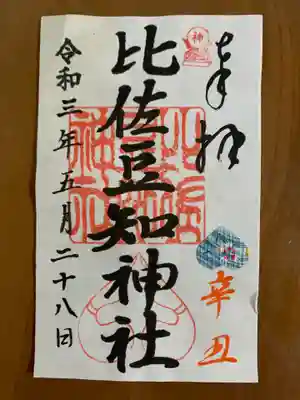 奉拝
辛丑
比佐豆知神社
令和三年五月二十八日
神